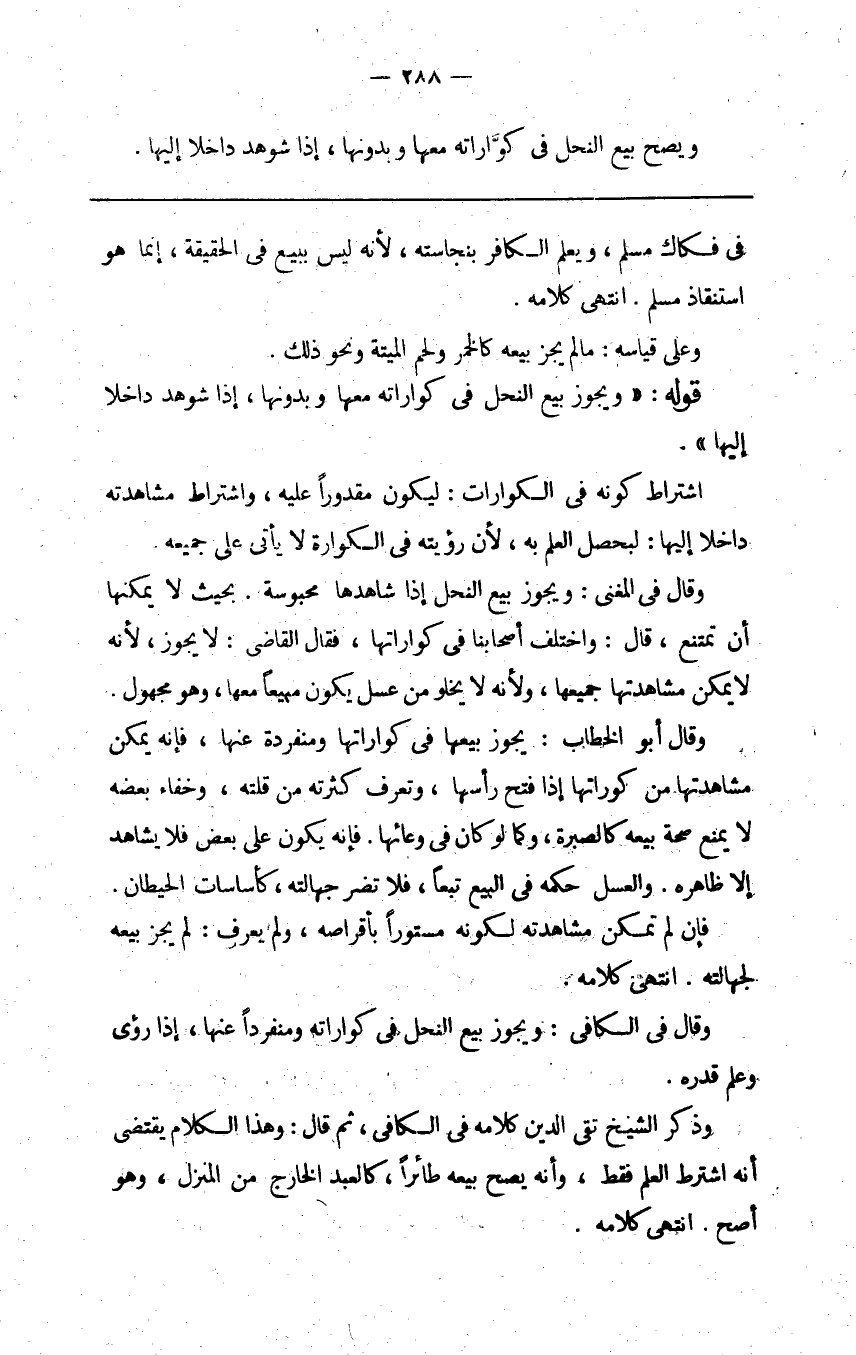 — ٢٨٨ —
ويصح بيع النحل فى كوَّاراته معها وبدونها ، إذا شوهد داخلا إليها .
فى فكاك مسلم ، ويعلم الكافر بنجاسته ، لأنه ليس ببيع فى الحقيقة ، إنما هو
استنقاذ مسلم . انتهى كلامه .
وعلى قياسه : مالم يجز بيعه كالخمر ولحم الميتة ونحو ذلك .
قوله : « ويجوز بيع النحل فى كواراته معها وبدونها ، إذا شوهد داخلا
إليها » .
اشتراط كونه فى الكوارات : ليكون مقدوراً عليه ، واشتراط مشاهدته
داخلا إليها : لبحصل العلم به ، لأن رؤيته فى الكوارة لا يأتى على جميعه .
وقال فى المغنى : ويجوز بيع النحل إذا شاهدها محبوسة . بحيث لا يمكنها
أن تمتنع ، قال : واختلف أصحابنا فى كواراتها ، فقال القاضى : لا يجوز ، لأنه
لايمكن مشاهدتها جميعها ، ولأنه لا يخلو من عسل يكون مبيعاً معها ، وهو مجهول .
وقال أبو الخطاب : يجوز بيعها فى كواراتها ومنفردة عنها ، فإنه يمكن
مشاهدتها من كوراتها إذا فتح رأسها ، وتعرف كثرته من قلته ، وخفاء بعضه
لا يمنع صحة بيعه كالصبرة ، وكما لو كان فى وعائها . فإنه يكون على بعض فلا يشاهد
إلا ظاهره . والعسل حكمه فى البيع تبعاً ، فلا تضر جهالته ، كأساسات الحيطان .
فإن لم تمكن مشاهدته لكونه مستوراً بأقراصه ، ولم يعرف : لم يجز بيعه
لجهالته . انتهى كلامه .
وقال فى الكافى : ويجوز بيع النحل فى كواراته ومنفرداً عنها ، إذا رؤى
وعلم قدره .
وذكر الشيخ تقى الدين كلامه فى الكافى ، ثم قال : وهذا الكلام يقتضى
أنه اشترط العلم فقط ، وأنه يصح بيعه طائراً ، كالعبد الخارج من المنزل ، وهو
أصح . انتهى كلامه .